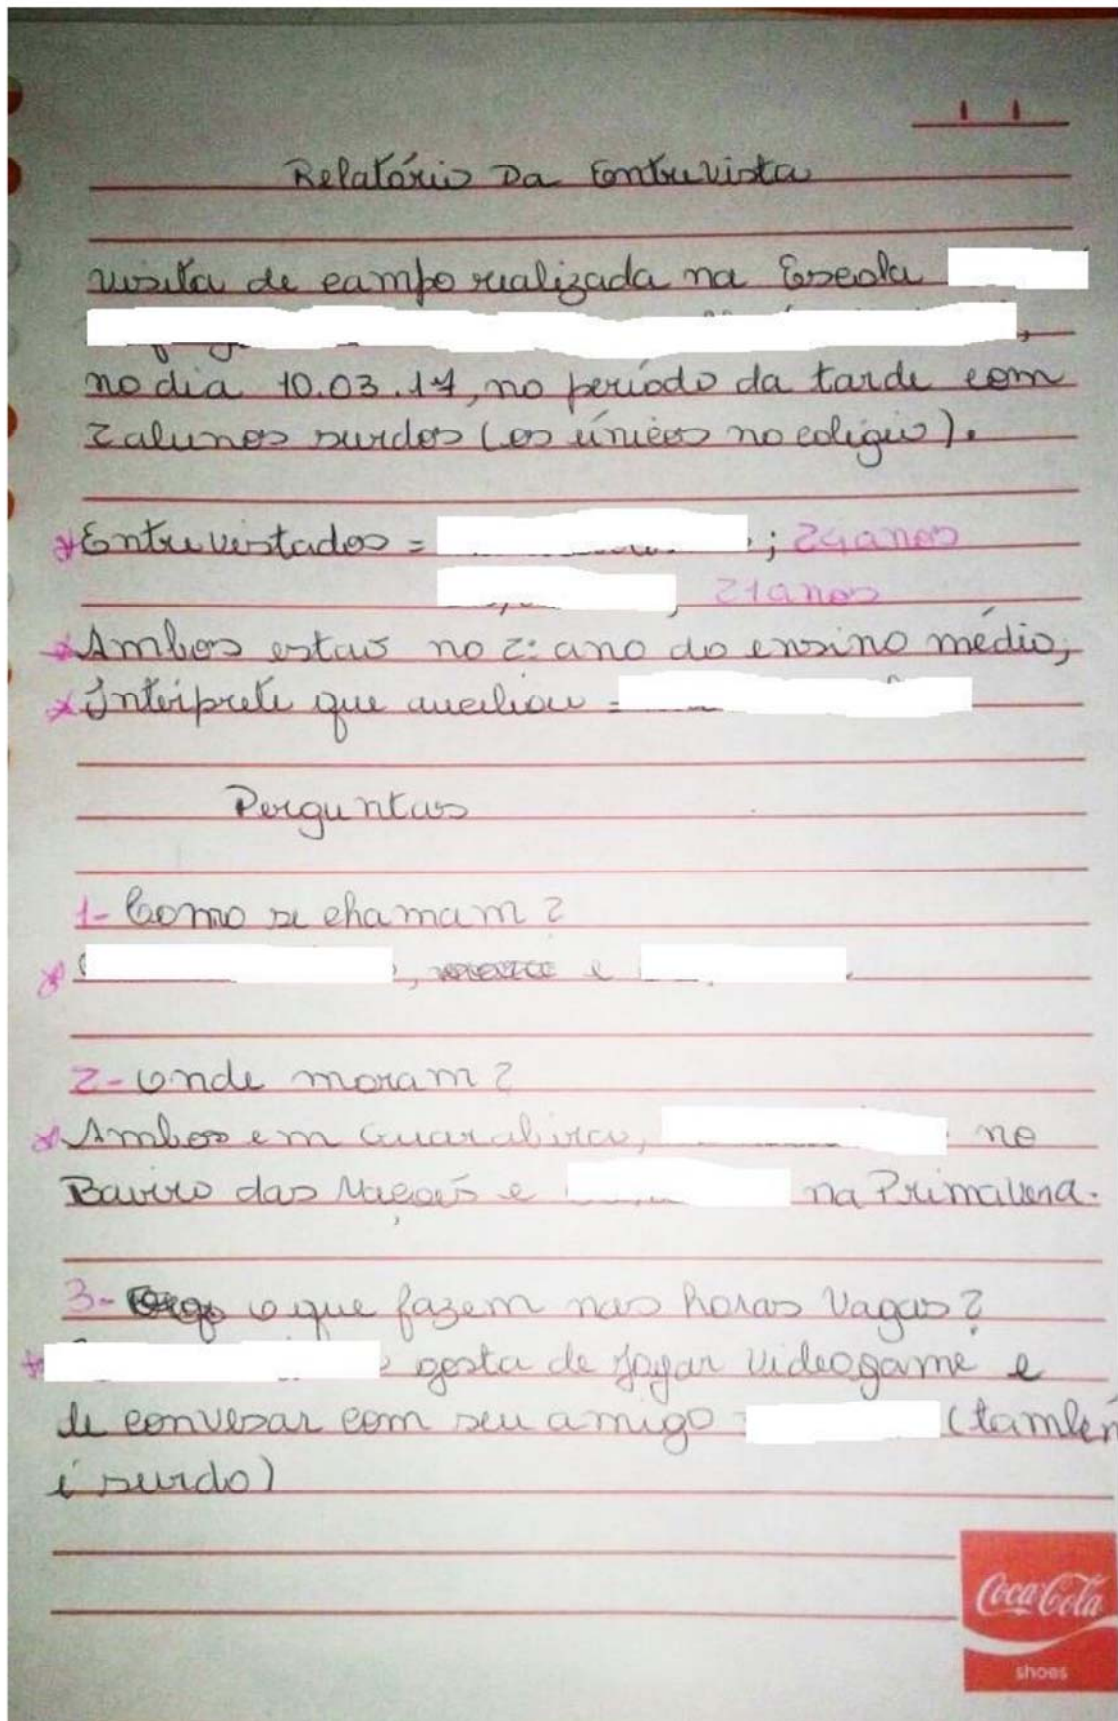 Relatório Da Entrevista
visita de campo realizada na Escola
no dia 10.03.17, no período da tarde com
2 alunos surdos (os únicos no colégio).
* Entrevistados = ; 24 anos
, 21 anos
* Ambos estão no 2º ano do ensino médio;
* Intérprete que auxiliou =
Perguntas
1- Como se chamam?
, e .
2- Onde moram?
* Ambos em Guarabira, no
Bairro das Nações e na Primavera.
3- o que fazem nas horas vagas?
* gosta de jogar videogame e
de conversar com seu amigo (também
é surdo)
Coca-Cola
shoes